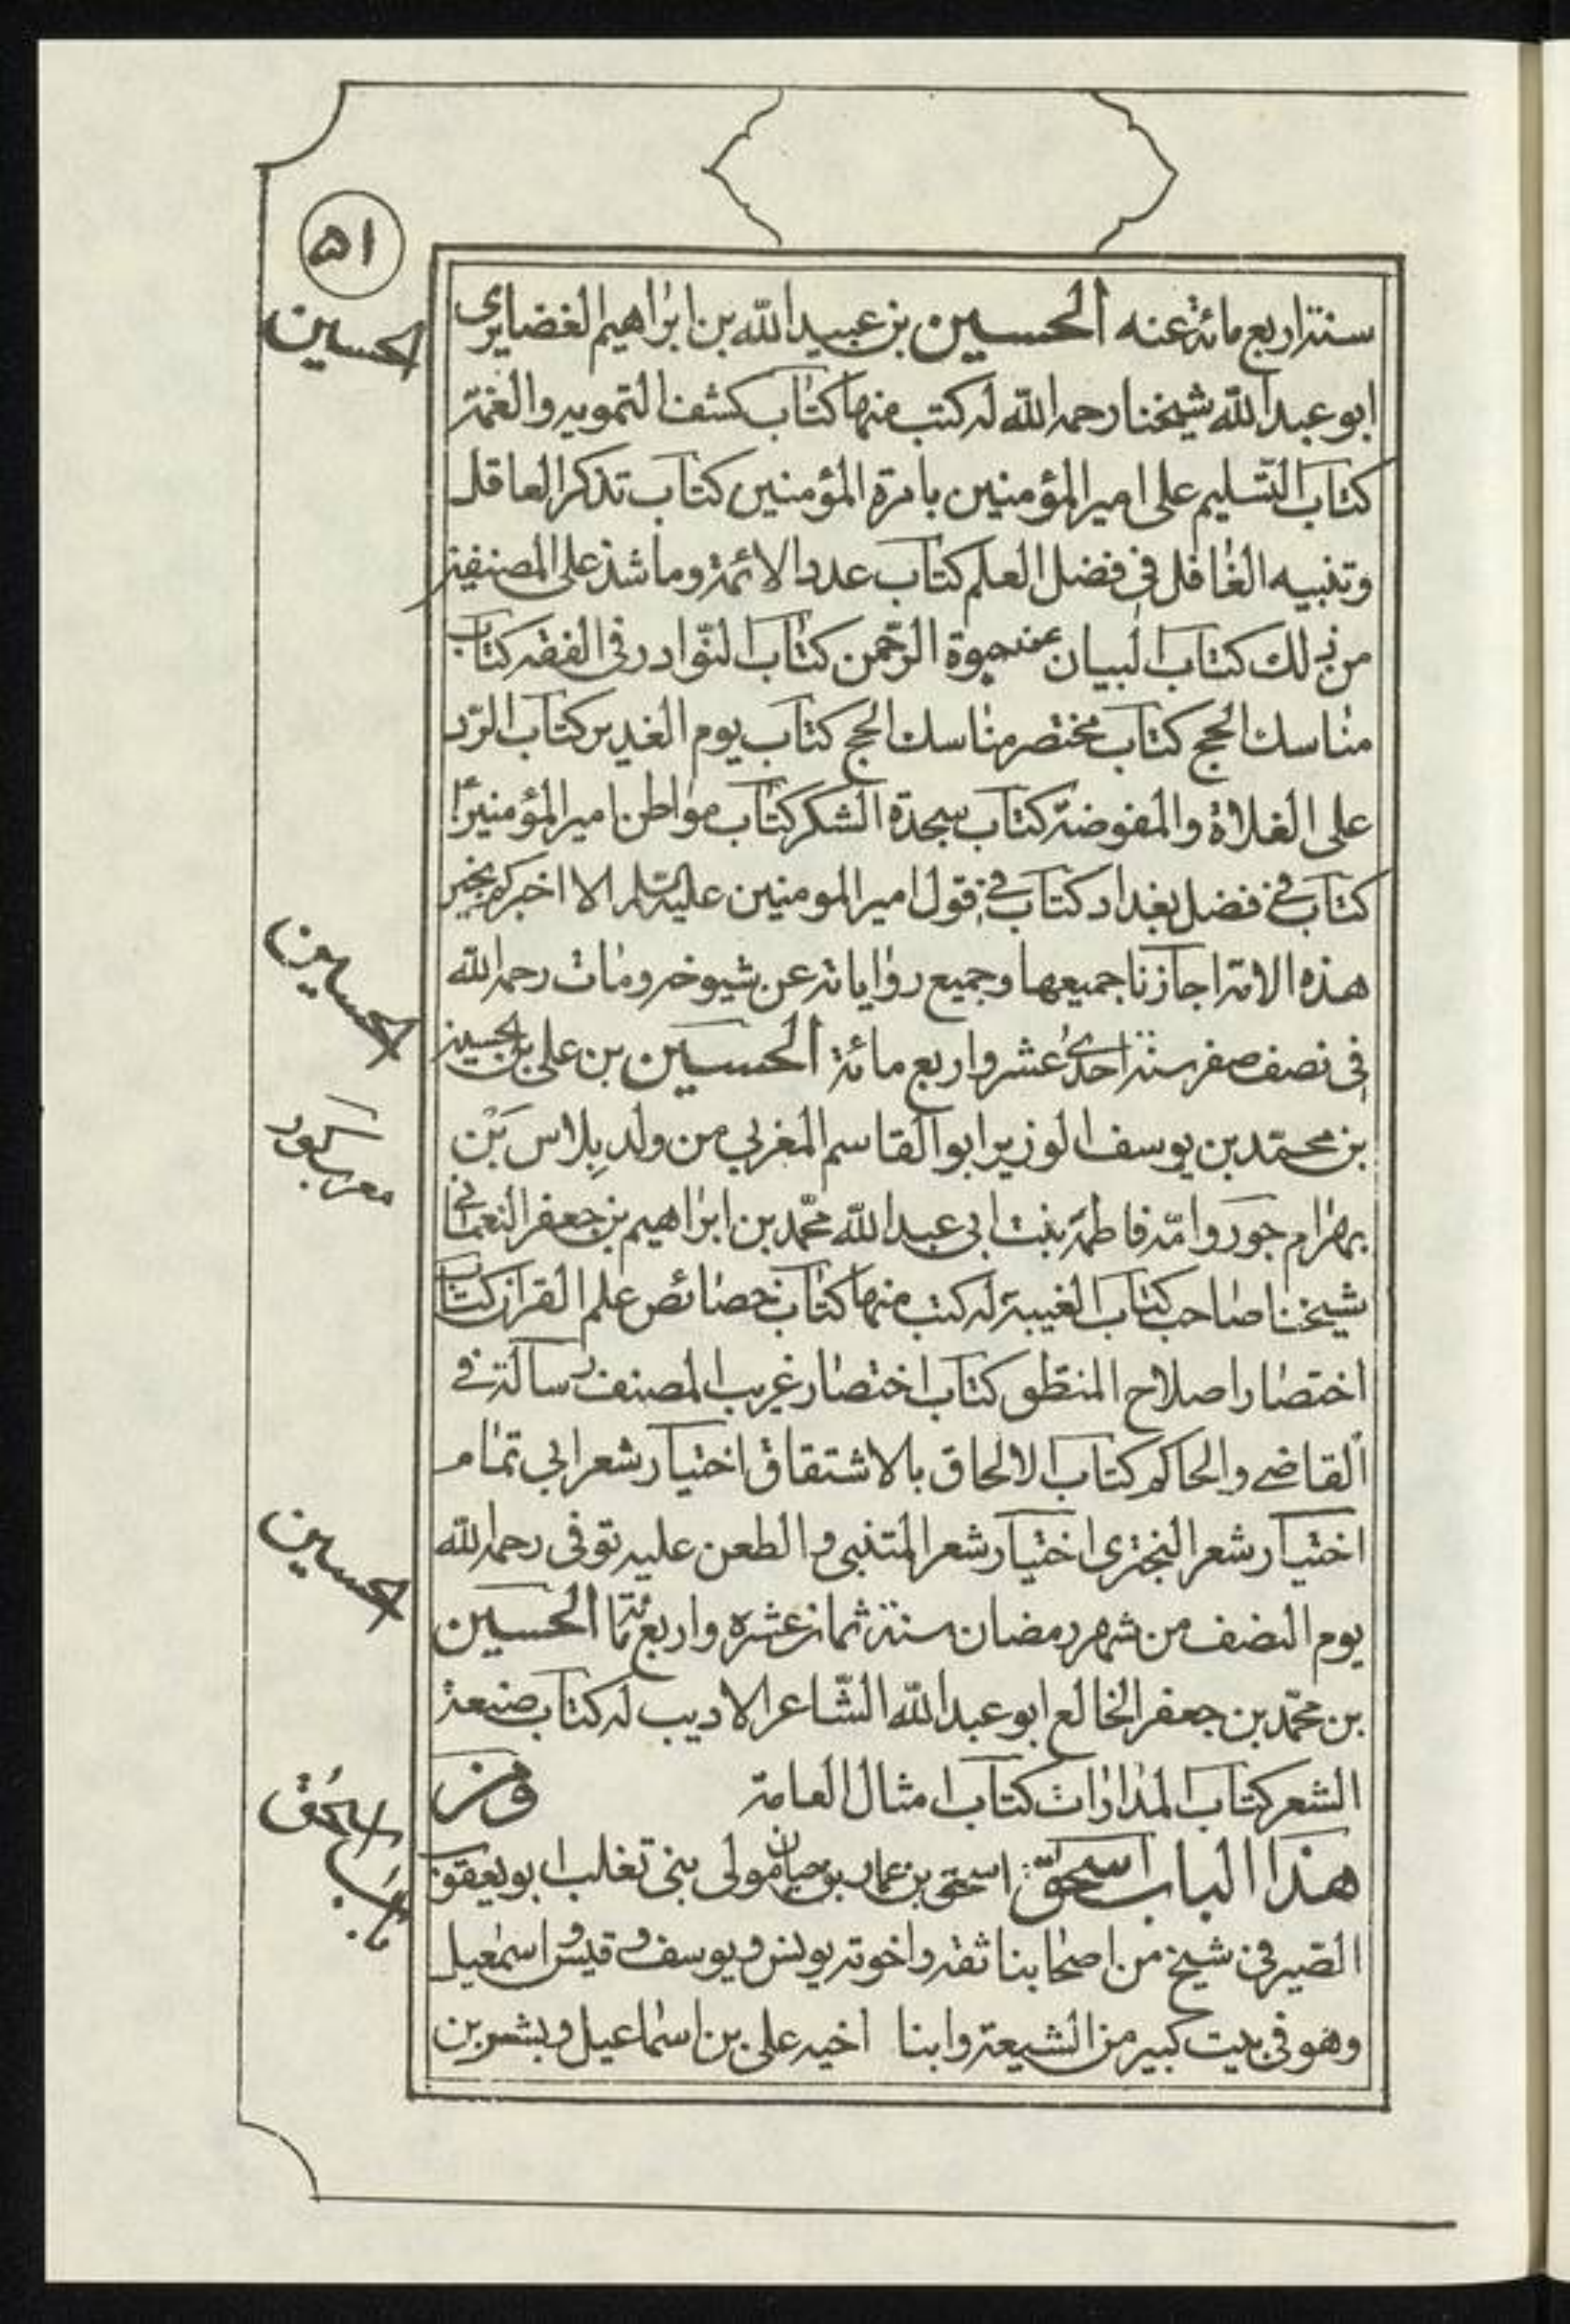 ٥١
سنة اربع مائة عنه الحسين بن عبيد الله بن ابراهيم الغضايري
ابو عبد الله شيخنا رحمه الله له كتب منها كتاب كشف التمويه والغمة
كتاب التسليم على امير المؤمنين بامرة المؤمنين كتاب تذكر العاقل
وتنبيه الغافل في فضل العلم كتاب عدد الائمة وما شذ على المصنفين
من ذلك كتاب البيان عن حبوة الرّحمن كتاب النّوادر في الفقه كتاب
مناسك الحج كتاب مختصر مناسك الحج كتاب يوم الغدير كتاب الرّد
على الغلاة والمفوضة كتاب سجدة الشكر كتاب مواطن امير المؤمنين
كتاب في فضل بغداد كتاب في قول امير المومنين عليه السلام الا اخبركم بخير
هذه الامة اجازنا جميعها وجميع رواياته عن شيوخه ومات رحمه الله
في نصف صفر سنة احدى عشر واربع مائة الحسين بن على بن الحسين
بن محمّد بن يوسف الوزير ابو القاسم المغربي من ولد بلاس بن
بهرام جور وامّه فاطمة بنت ابي عبد الله محمّد بن ابراهيم بن جعفر النعماني
شيخنا صاحب كتاب الغيبة له كتب منها كتاب خصائص علم القران كتاب
اختصار اصلاح المنطق كتاب اختصار غريب المصنف رسالة في
القاضي والحاكم كتاب الالحاق بالاشتقاق اختيار شعر ابي تمام
اختيار شعر البحترى اختيار شعر المتنبى والطعن عليه توفى رحمه الله
يوم النصف من شهر رمضان سنة ثمان عشره واربع مائة الحسين
بن محمّد بن جعفر الخالع ابو عبد الله الشّاعر الاديب له كتاب صنعة
الشعر كتاب المدارات كتاب امثال العامة ومن
هذا الباب اسحق اسحق بن عمار بن حيان مولى بني تغلب ابو يعقوب
الصيرفي شيخ من اصحابنا ثقة واخوته يونس ويوسف وقيس واسمعيل
وهو في بيت كبير من الشيعة وابنا اخيه على بن اسماعيل وبشر بن
الحسين
الحسين
معرب كور
الحسين
اسحق
باب